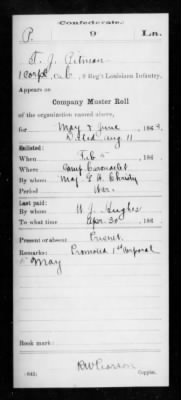 Confederate.
P. 9 La.
T. J. Pitman
1 Corpl, Co. C, 9 Reg't Louisiana Infantry.
Appears on
Company Muster Roll
of the organization named above,
for May & June, 186
Dated Aug 11
Enlisted:
When Feb 5, 186
Where Camp
By whom Maj
Period War.
Last paid:
By whom W. J. Hughes
To what time Apr. 30, 186
Present or absent Present
Remarks: Promoted 1st Corporal
5 May
Book mark:
(642)
R W Pearson
Copyist.